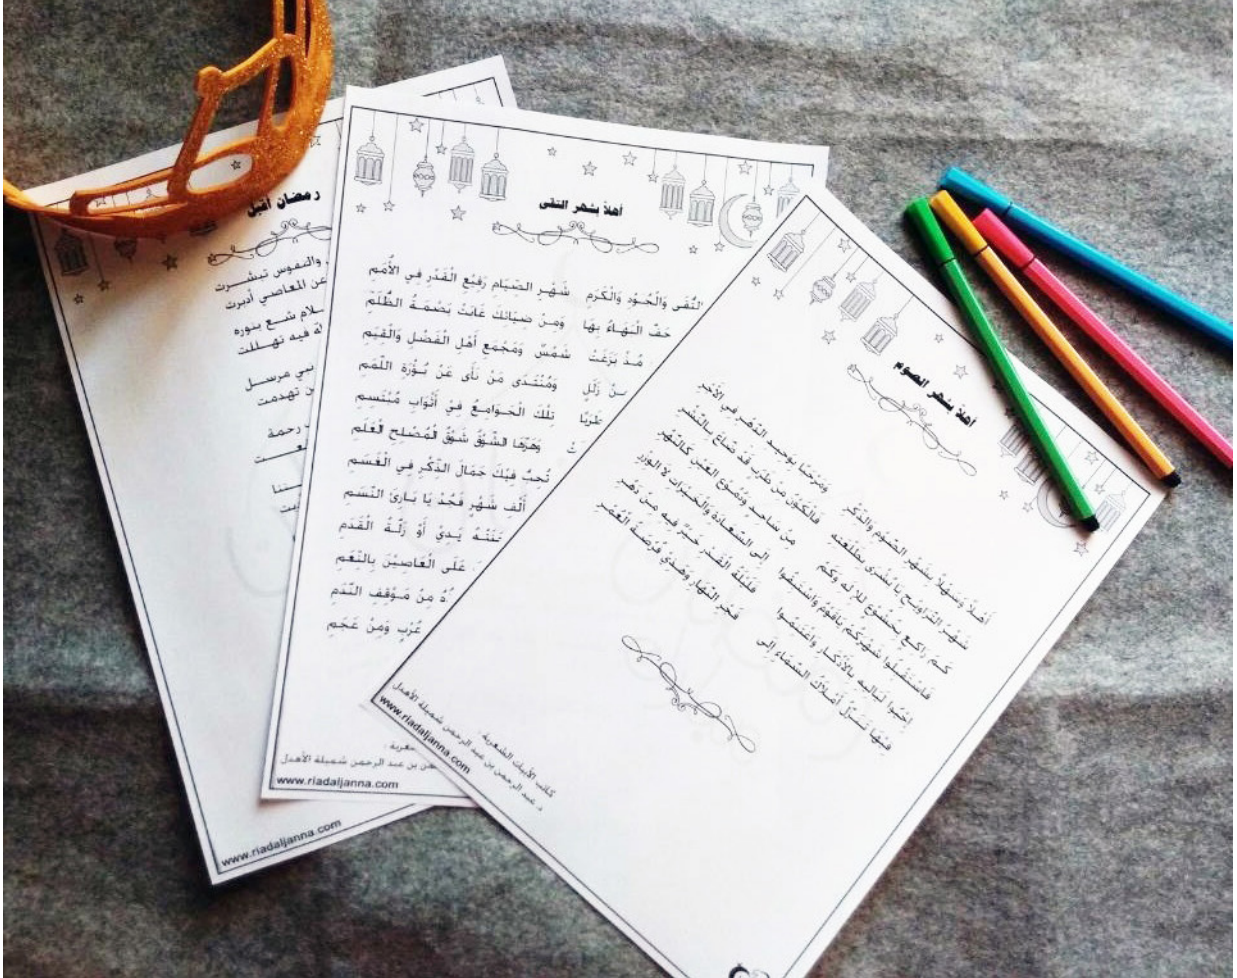 رمضان أقبل
والنفوس تبشرت
عن المعاصي أدبرت
شع بنوره
فيه تهللت
نبي مرسل
تهدمت
رحمة
www.riadaljanna.com
أهلاً بشهر التقى
التُّقَى وَالْجُوْدِ وَالْكَرَمِ شَهْرِ الصِّيَامِ رَفِيْعِ الْقَدْرِ فِي الْأُمَمِ
حَفَّ الْبَهَاءُ بِهَا وَمِنْ ضِيَائِكَ غَابَتْ بَصْمَةُ الظُّلَمِ
مُذْ بَزَغَتْ شَمْسٌ وَمَجْمَعِ أَهْلِ الْفَضْلِ وَالْقِيَمِ
زَلَلٍ وَمُنْتَدَى مَنْ نَأَى عَنْ بُؤْرَةِ اللَّمَمِ
طَرَبًا تِلْكَ الْجَوَامِعُ فِيْ أَثْوَابِ مُبْتَسِمِ
وَهَزَّهَا الشَّوْقُ شَوْقُ الْمُصْلِحِ الْعَلَمِ
نُحِبُّ فِيْكَ جَمَالَ الذِّكْرِ فِي الْغَسَمِ
أَلْفَ شَهْرٍ فَجُدْ يَا بَارِئَ النَّسَمِ
يَدِيْ أَوْ زَلَّةُ الْقَدَمِ
عَلَى الْعَاصِيْنَ بِالنِّعَمِ
مِنْ مَوْقِفِ النَّدَمِ
عُرْبٍ وَمِنْ عَجَمِ
بن عبد الرحمن شميلة الأهدل
www.riadaljanna.com
أهلاً بشهر الصوم
أَهْلاً وَسَهْلاً بِشَهْرِ الصَّوْمِ وَالذِّكْرِ وَمَرْحَبًا بِوَحِيدِ الدَّهْرِ فِي الْأَجْرِ
شَهْرُ التَّرَاوِيْحِ يَا بُشْرَى بِطَلْعَتِهِ فَالْكَوْنُ مِنْ طَرَبٍ قَدْ ضَاعَ بِالنَّشْرِ
كَمْ رَاكِعٍ بِخُشُوْعٍ لِلْإِلَهِ وَكَمْ مِنْ سَاجِدٍ وَدُمُوْعُ الْعَيْنِ كَالنَّهْرِ
فَاسْتَقْبِلُوا شَهْرَكُمْ يَا قَوْمُ وَاسْتَبِقُوا إِلَى السَّعَادَةِ وَالْخَيْرَاتِ لَا الْوِزْرِ
إِحْيُوا لَيَالِيهِ بِالْأَذْكَارِ وَاغْتَنِمُوا فَلَيْلَةُ الْقَدْرِ خَيْرٌ فِيهِ مِنْ دَهْرِ
فِيْهَا تَنَزَّلُ أَمْلَاكُ السَّمَاءِ إِلَى فَجْرِ النَّهَارِ وَهَذِيْ فُرْصَةُ الْعُمْرِ
كاتب الأبيات الشعرية :
د. عبد الرحمن بن عبد الرحمن شميلة الأهدل
www.riadaljanna.com